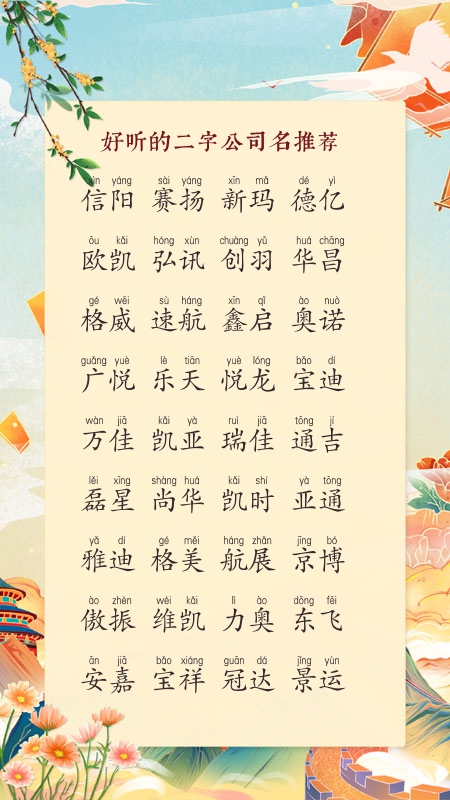 好听的二字公司名推荐
xìn yáng sài yáng xīn mǎ dé yì
信阳 赛扬 新玛 德亿
ōu kǎi hóng xùn chuàng yǔ huá chāng
欧凯 弘讯 创羽 华昌
gé wēi sù háng xīn qǐ ào nuò
格威 速航 鑫启 奥诺
guǎng yuè lè tiān yuè lóng bǎo dí
广悦 乐天 悦龙 宝迪
wàn jiā kǎi yà ruì jiā tōng jí
万佳 凯亚 瑞佳 通吉
lěi xīng shàng huá kǎi shí yà tōng
磊星 尚华 凯时 亚通
yǎ dí gé měi háng zhǎn jīng bó
雅迪 格美 航展 京博
ào zhèn wéi kǎi lì ào dōng fēi
傲振 维凯 力奥 东飞
ān jiā bǎo xiáng guān dá jǐng yùn
安嘉 宝祥 冠达 景运